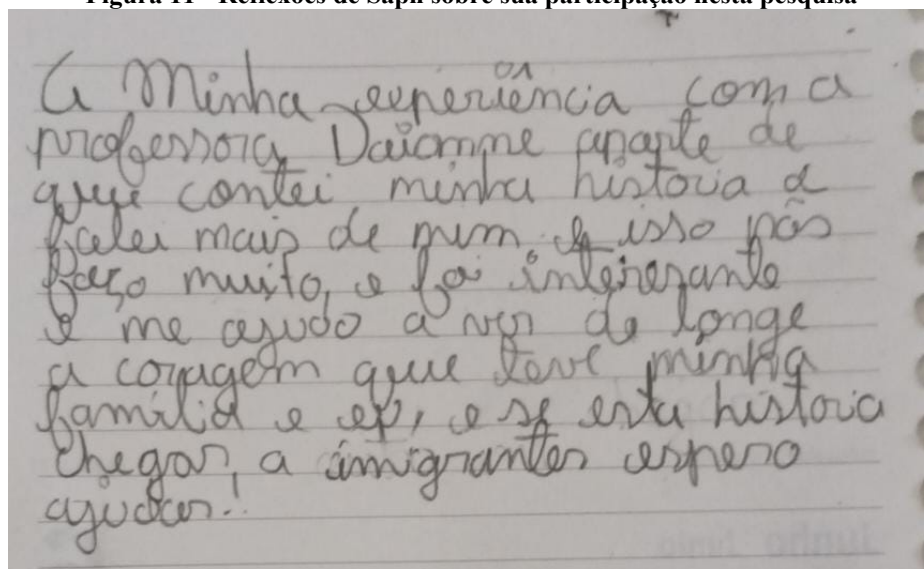 Figura 11 - Reflexões de Sapil sobre sua participação nesta pesquisa
A Minha experiência com a
professora Daiamne aparte de
que contei minha historia e
falei mais de mim e isso não
faço muito, e foi interezante
e me ajudo a ver de longe
a coragem que teve minha
família e eu, e se esta historia
chegar, a imigrantes espero
ajudar!